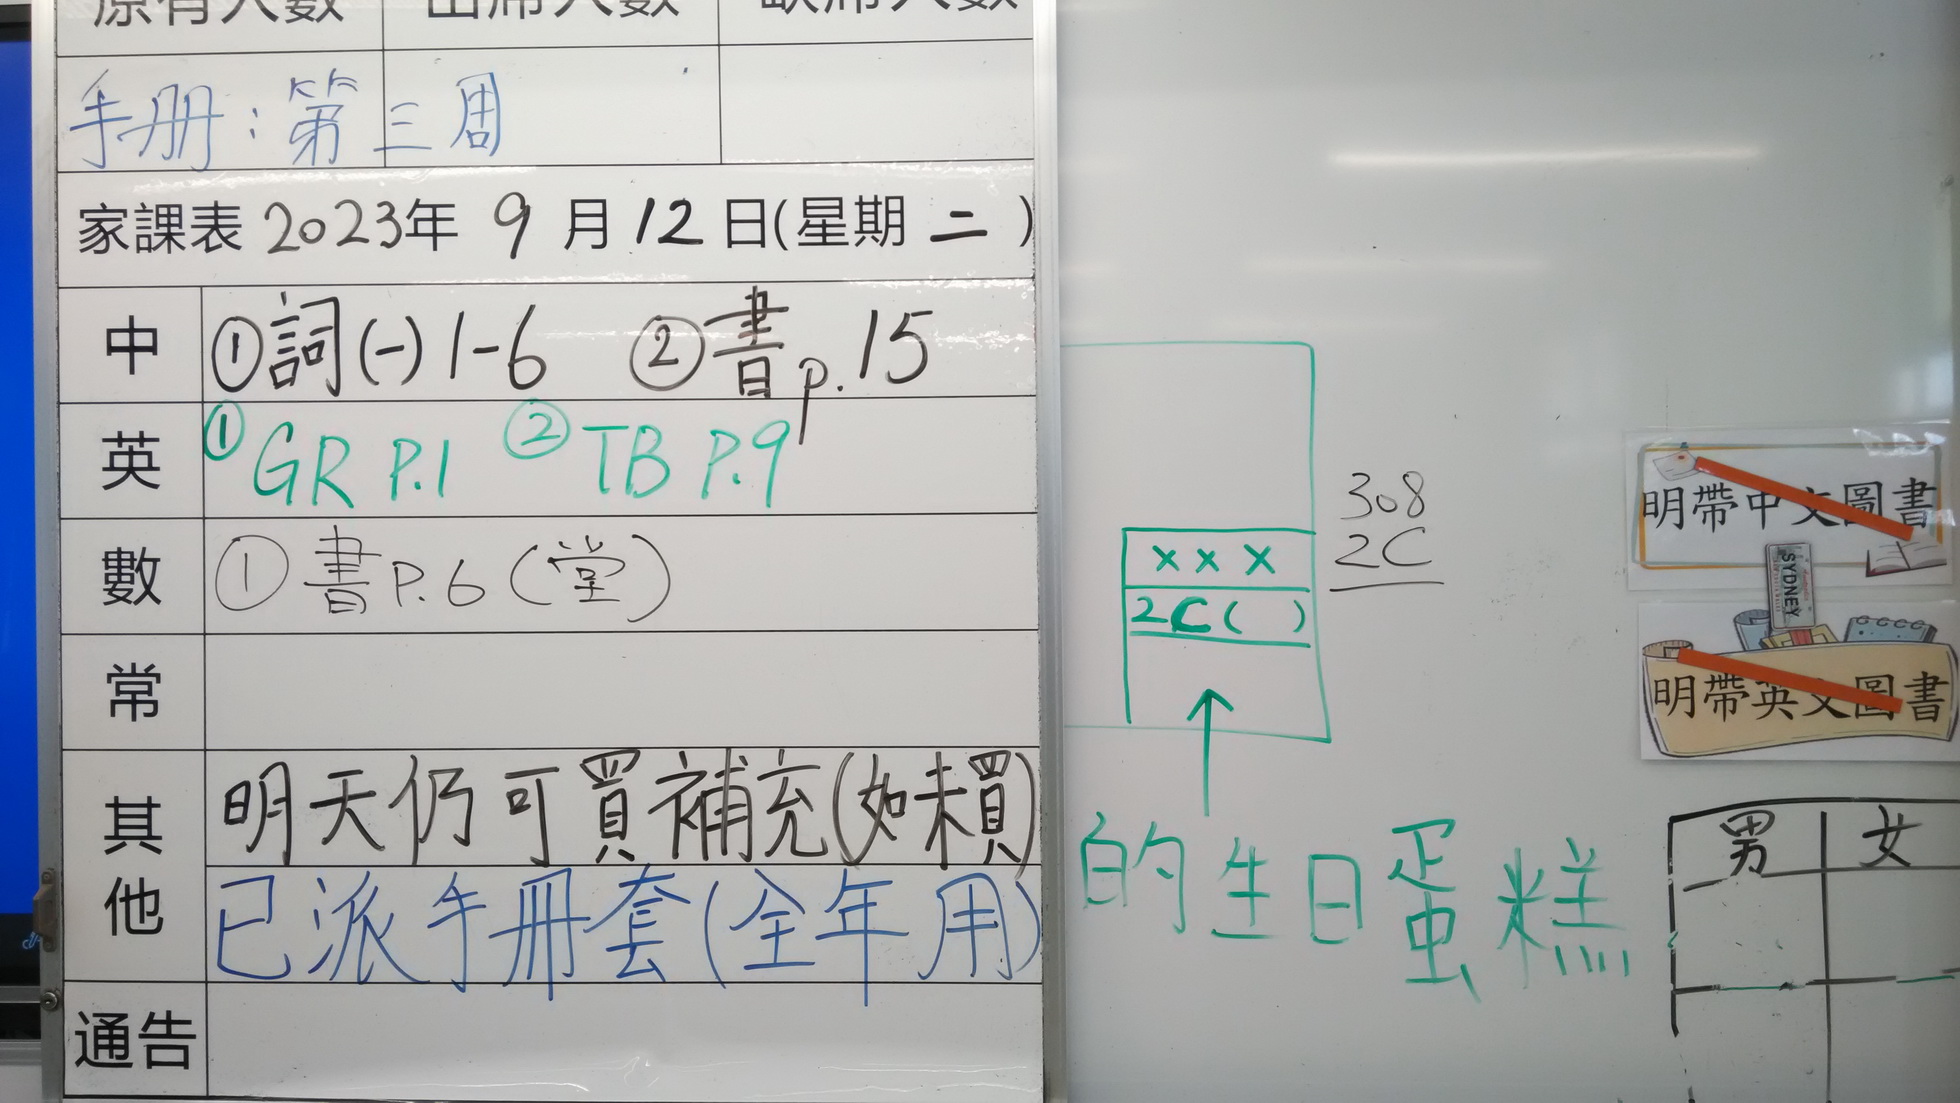 原有人數 出席人數 缺席人數
手册：第三周
家課表 2023年 9 月 12 日(星期 二 )
中 ①詞(一) 1-6 ②書 p.15
英 ①GR P.1 ②TB P.9
數 ①書P.6 (堂)
常
其他 明天仍可買補充(如未買)
已派手冊套(全年用)
通告
308
2C
x x x
2C( )
的生日蛋糕
明帶中文圖書
SYDNEY
明帶英文圖書
男 女